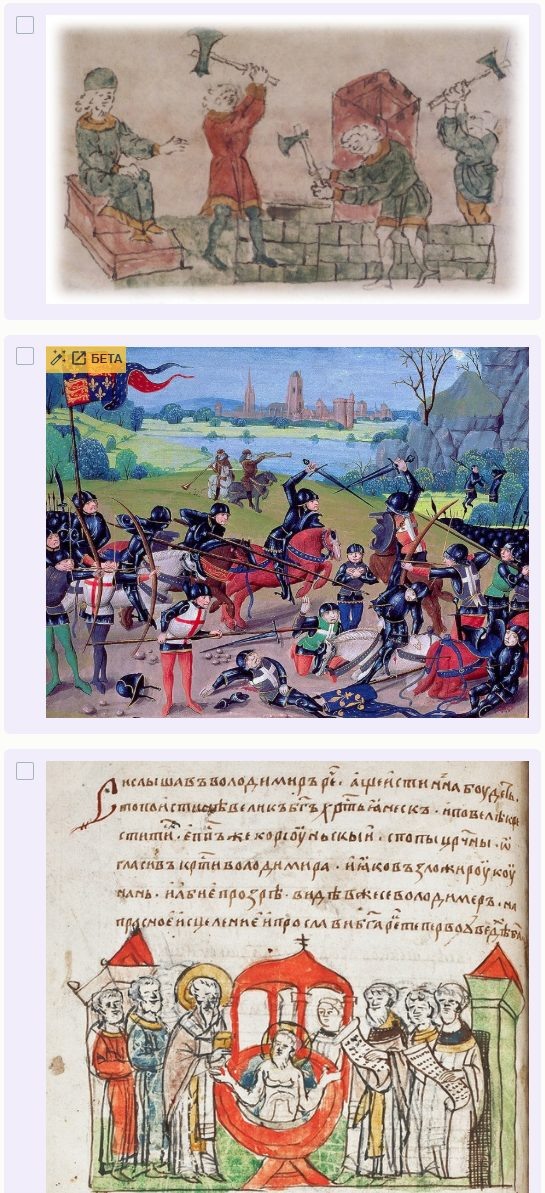 БЕТА
Слышавъ володимиръ ре҃. аще истинна боудеть.
то поистинѣ великъ бг҃ъ хр҃тьꙗнескъ. и повелѣ кр
стити. еп҃пъ же корсоуньскыи. с попы цр҃цны. ѿ
гласивъ кр҃ти володимира. и ꙗко възложи роукоу
нань. и абие прозрѣ. видѣвже се володимеръ. на
прасное исцеление и прослави бг҃а ре҃ те перво